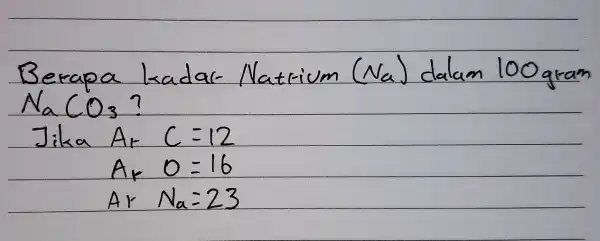 Berapa kadar Natrium (Na) dalam 100 gram
NaCO3 ?
Jika Ar C = 12
Ar O = 16
Ar Na = 23